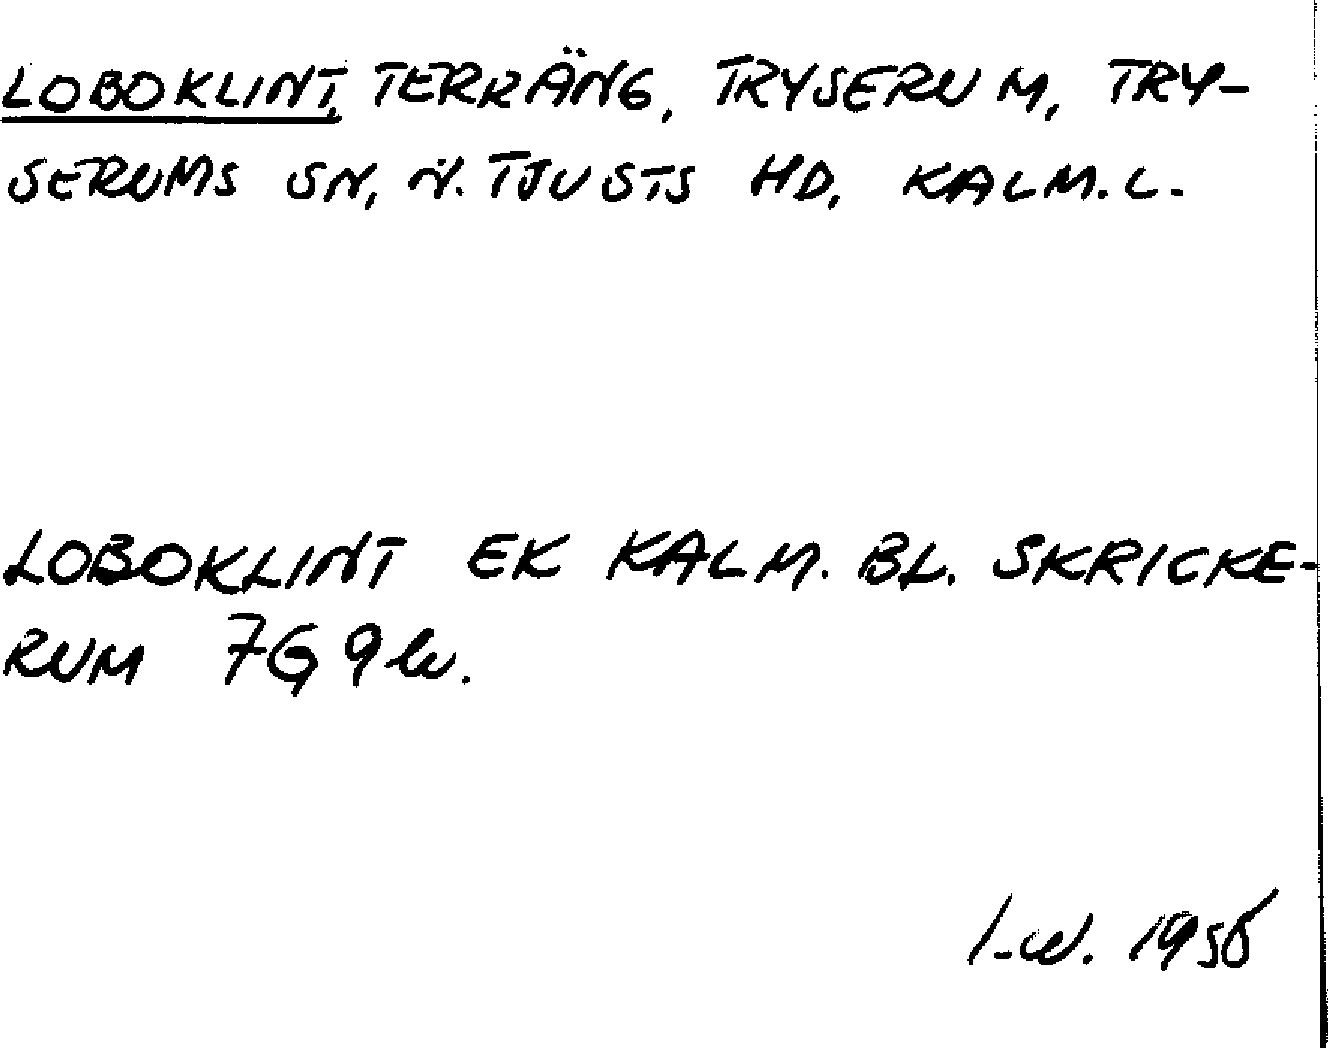 LOBOKLINT, TERRÄNG, TRYSERUM, TRY-
SERUMS SN, N. TJUSTS HD, KALM. L.
LOBOKLINT EK KALM. BL. SKRICKE-
RUM 7G 9